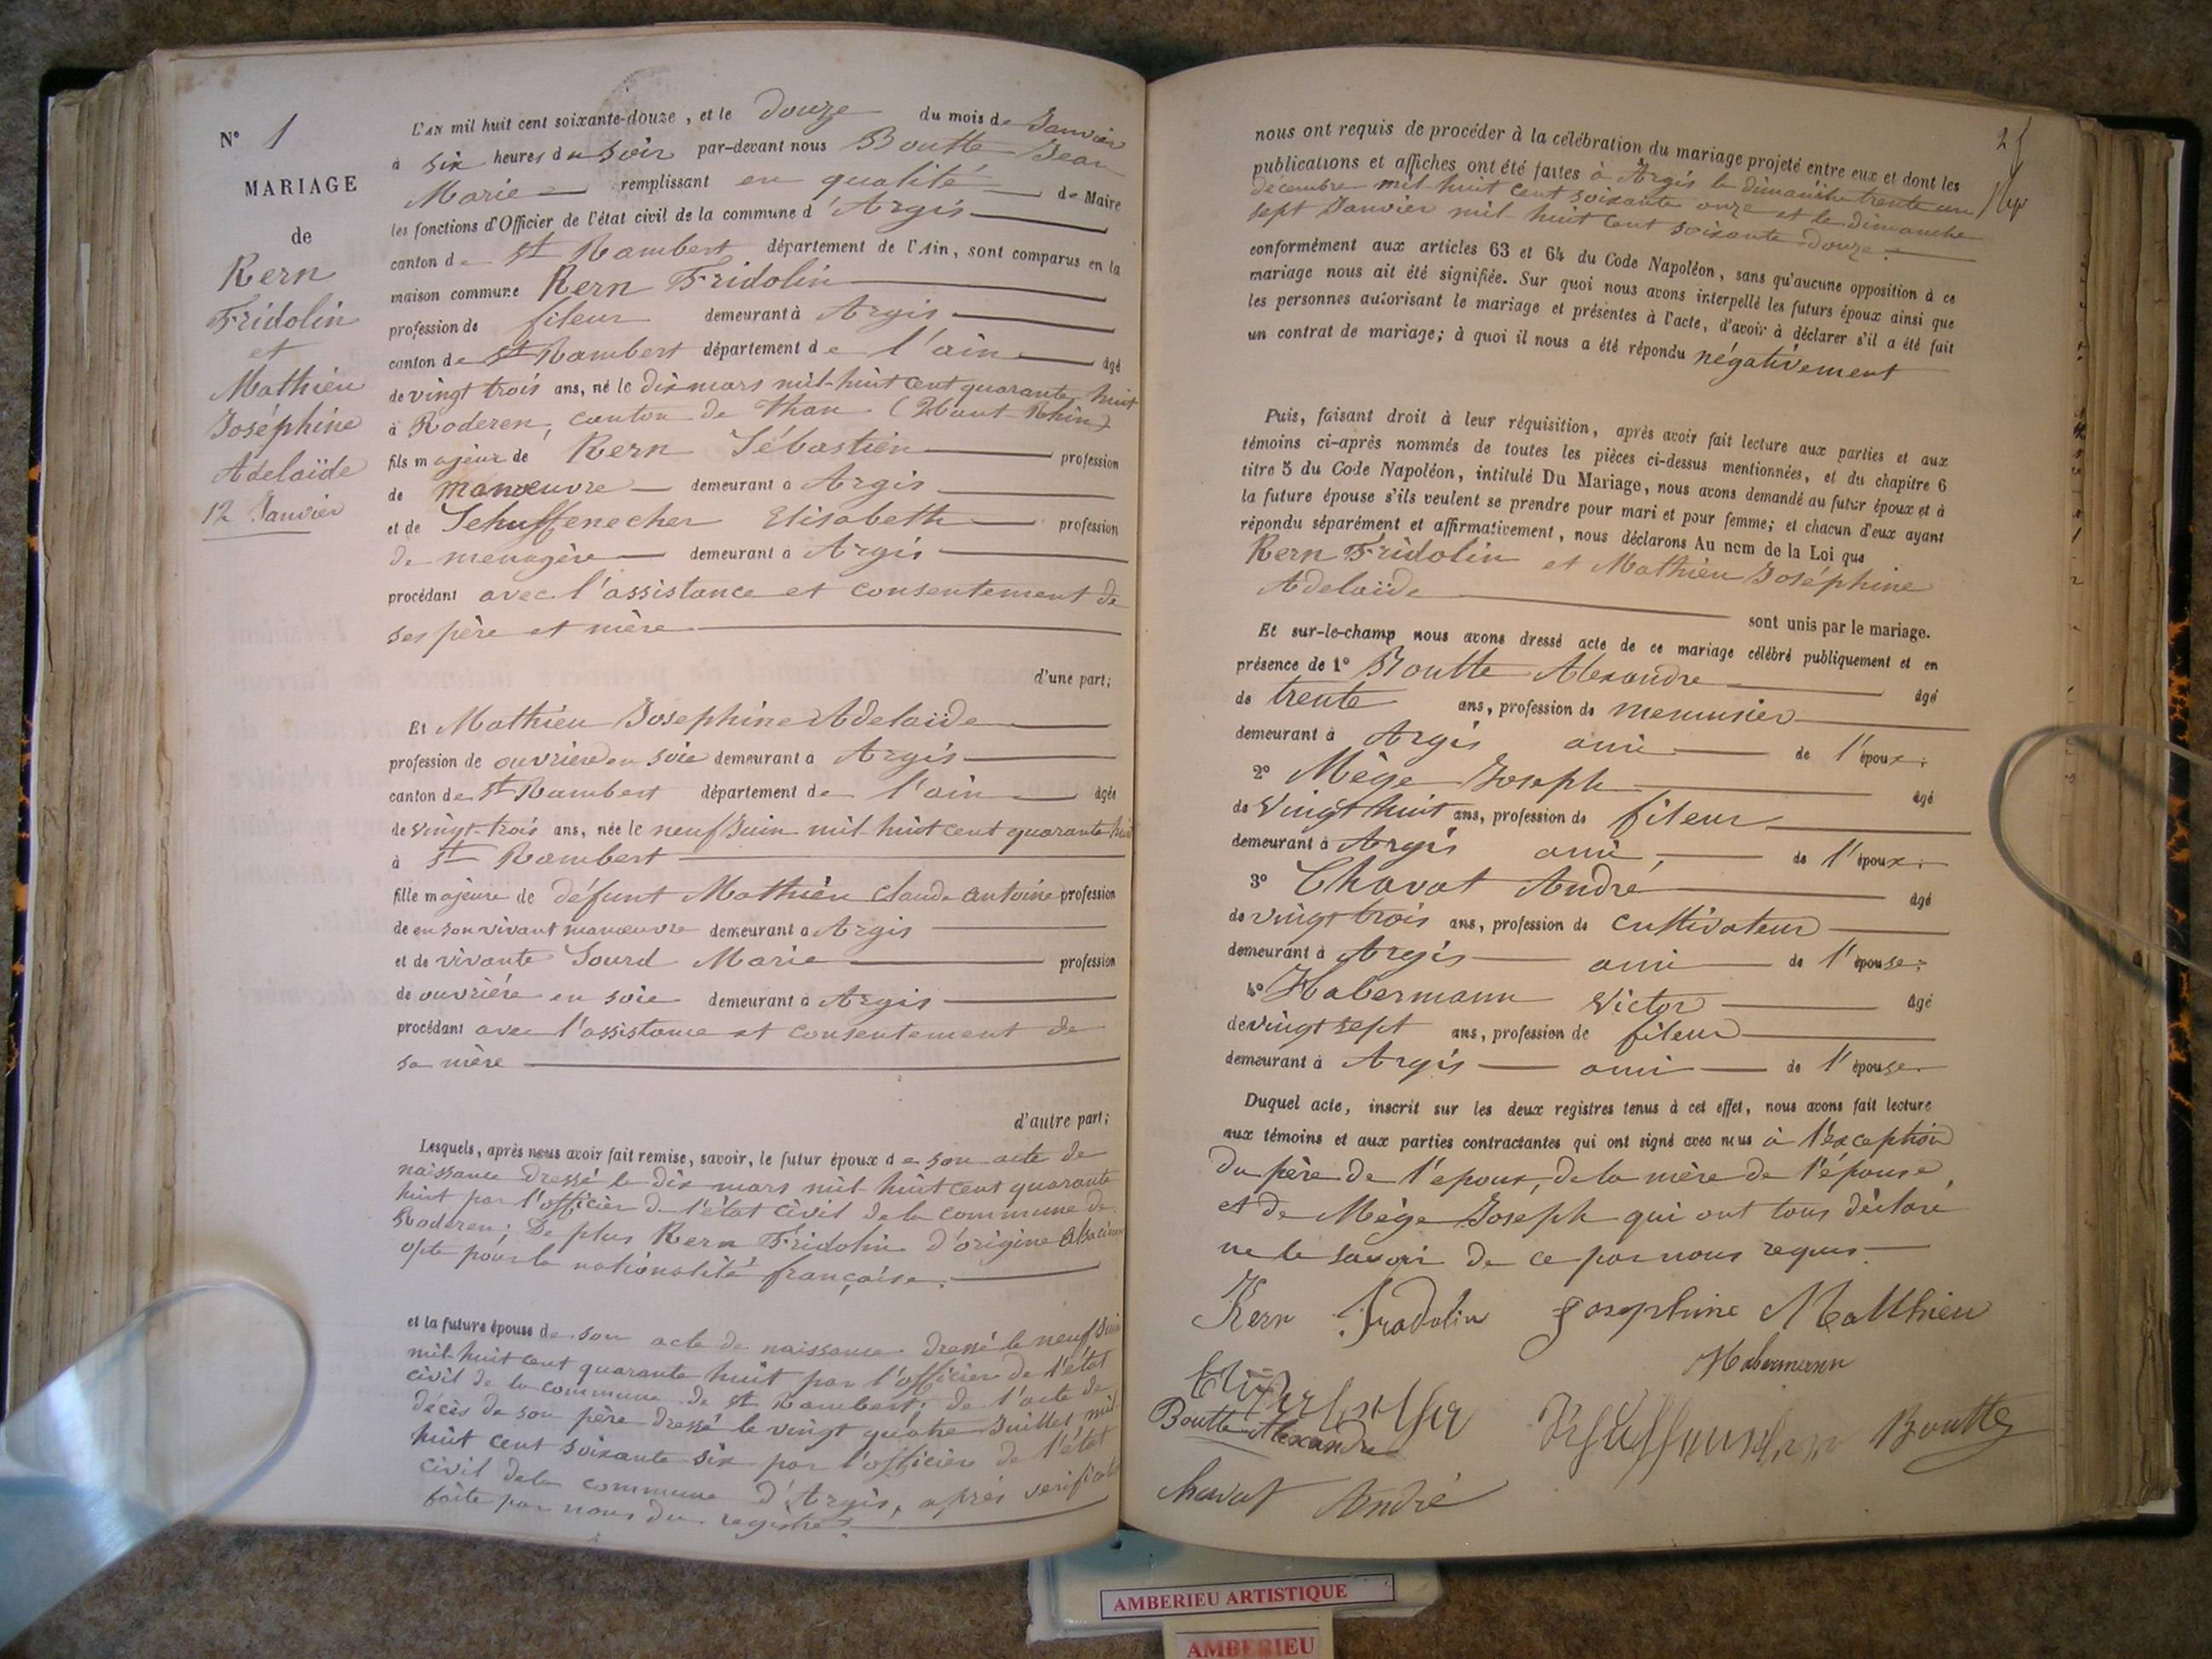 N° 1
MARIAGE
de
Kern
Fridolin
et
Mathieu
Joséphine
Adelaïde
12 Janvier
L'AN mil huit cent soixante-douze, et le douze du mois de Janvier
à six heures du soir par-devant nous Boutte Jean
Marie remplissant en qualité de Maire
les fonctions d'Officier de l'état civil de la commune d'Argis
canton de St Rambert département de l'Ain, sont comparus en la
maison commune Kern Fridolin
profession de fileur demeurant à Argis
canton de St Rambert département de l'ain âgé
de vingt trois ans, né le dix mars mil-huit cent quarante huit
à Roderen, canton de Than (Haut-Rhin)
fils majeur de Kern Sébastien profession
de manœuvre demeurant à Argis
et de Schuffenecher Elisabeth profession
de menagère demeurant à Argis
procédant avec l'assistance et consentement de
ses père et mère
d'une part;
Et Mathieu Josephine Adelaïde
profession de ouvrière en soie demeurant à Argis
canton de St Rambert département de l'ain âgée
de vingt-trois ans, née le neuf Juin mil-huit cent quarante huit
à St Rambert
fille majeure de défunt Mathieu Claude Antoine profession
de en son vivant manœuvre demeurant à Argis
et de vivante Sourd Marie profession
de ouvrière en soie demeurant à Argis
procédant avec l'assistance et consentement de
sa mère
d'autre part;
Lesquels, après nous avoir fait remise, savoir, le futur époux de son acte de
naissance dressé le dix mars mil-huit cent quarante
huit par l'officier de l'état civil de la commune de
Roderen; De plus Kern Fridolin d'origine Alsacienne
opte pour la nationalité française.
et la future épouse de son acte de naissance dressé le neuf Juin
mil-huit cent quarante huit par l'officier de l'état
civil de la commune de St Rambert; de l'acte de
décès de son père dressé le vingt quatre Juillet mil-
huit cent soixante six par l'officier de l'état
civil de la commune d'Argis, après verification
faite par nous du registre.
2
nous ont requis de procéder à la célébration du mariage projeté entre eux et dont les
publications et affiches ont été faites à Argis le dimanche trente un
décembre mil-huit cent soixante onze et le dimanche
sept Janvier mil huit cent soixante-douze.
conformément aux articles 63 et 64 du Code Napoléon, sans qu'aucune opposition à ce
mariage nous ait été signifiée. Sur quoi nous avons interpellé les futurs époux ainsi que
les personnes autorisant le mariage et présentes à l'acte, d'avoir à déclarer s'il a été fait
un contrat de mariage; à quoi il nous a été répondu négativement
Puis, faisant droit à leur réquisition, après avoir fait lecture aux parties et aux
témoins ci-après nommés de toutes les pièces ci-dessus mentionnées, et du chapitre 6
titre 5 du Code Napoléon, intitulé Du Mariage, nous avons demandé au futur époux et à
la future épouse s'ils veulent se prendre pour mari et pour femme; et chacun d'eux ayant
répondu séparément et affirmativement, nous déclarons Au nom de la Loi que
Kern Fridolin et Mathieu Joséphine
Adelaïde
sont unis par le mariage.
Et sur-le-champ nous avons dressé acte de ce mariage célébré publiquement et en
présence de 1° Boutte Alexandre âgé
de trente ans, profession de menuisier
demeurant à Argis ami de l'époux;
2° Mège Joseph âgé
de vingt huit ans, profession de fileur
demeurant à Argis ami, de l'époux;
3° Chavat André âgé
de vingt trois ans, profession de cultivateur
demeurant à Argis ami de l'épouse;
4° Habermann Victor âgé
de vingt sept ans, profession de fileur
demeurant à Argis ami de l'épouse
Duquel acte, inscrit sur les deux registres tenus à cet effet, nous avons fait lecture
aux témoins et aux parties contractantes qui ont signé avec nous à l'exception
du père de l'époux, de la mère de l'épouse,
et de Mège Joseph qui ont tous déclaré
ne le savoir de ce par nous requis
Kern Fradolin Josephine Matthieu
Habermann
Boutte Alexandre
Boutte
Chavat André
AMBERIEU ARTISTIQUE
AMBERIEU